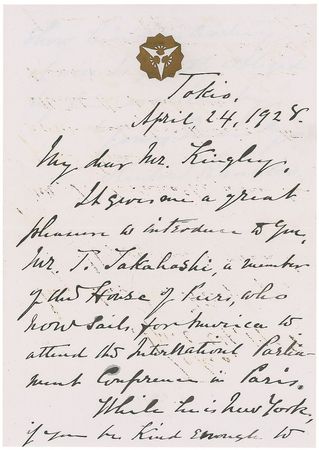 Tokio,
April, 24, 1928.
My dear Mr. Kingley,
It gives me a great
pleasure to introduce to you,
Mr. T. Takahashi, a member
of the House of Peers, who
now sails for America to
attend the International Parlia-
ment Conference in Paris.
While he is New York,
if you be kind enough to